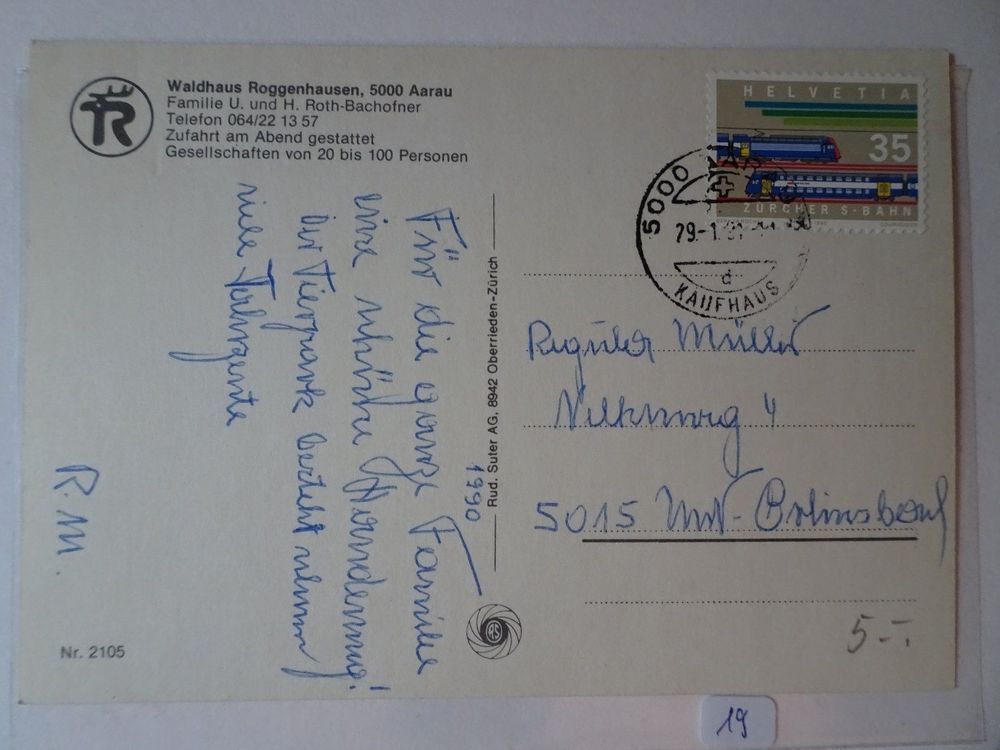 Waldhaus Roggenhausen, 5000 Aarau
Familie U. und H. Roth-Bachofner
Telefon 064/22 13 57
Zufahrt am Abend gestattet
Gesellschaften von 20 bis 100 Personen
R
HELVETIA
35
ZÜRCHER S-BAHN
5000 AARAU
29.-1.91
d
KAUFHAUS
Für die ganze Familie
eine schöne Wanderung!
Der Tierpark besteht schon
viele Jahrzente
R.M.
1990
Rud. Suter AG, 8942 Oberrieden-Zürich
RS
Müller
4
5015 Unt-Erlinsbach
Nr. 2105
5.-
19